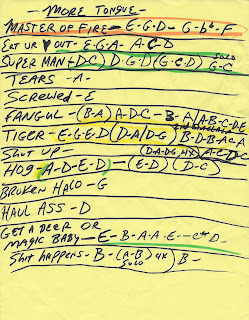 - MORE TONGUE -
MASTER OF FIRE - E-G-D - G-b♭-F
EAT UR ♥ OUT - E-G-A- A-C-D
SUPER MAN (DC) D-G-D (G-C-D) SOLO G-C
TEARS - A-
SCREWED - E
FANGUL - (B-A) A-D-C - B- A/A-B-C-DE
TIGER - E-G-E-D (D-A/D-G) B-D-B-A-C-A
SHUT UP - (D-A-DG 4X) A-C-D-C
HOG - A-D-E-D) - (E-D) (D-C)
BROKEN HALO - G
HAUL ASS - D
GET A BEER OR
MAGIC BABY - E- B-A-A-E- - C# D
SHIT HAPPENS - B- (A-B) 4X) B-
SOLO